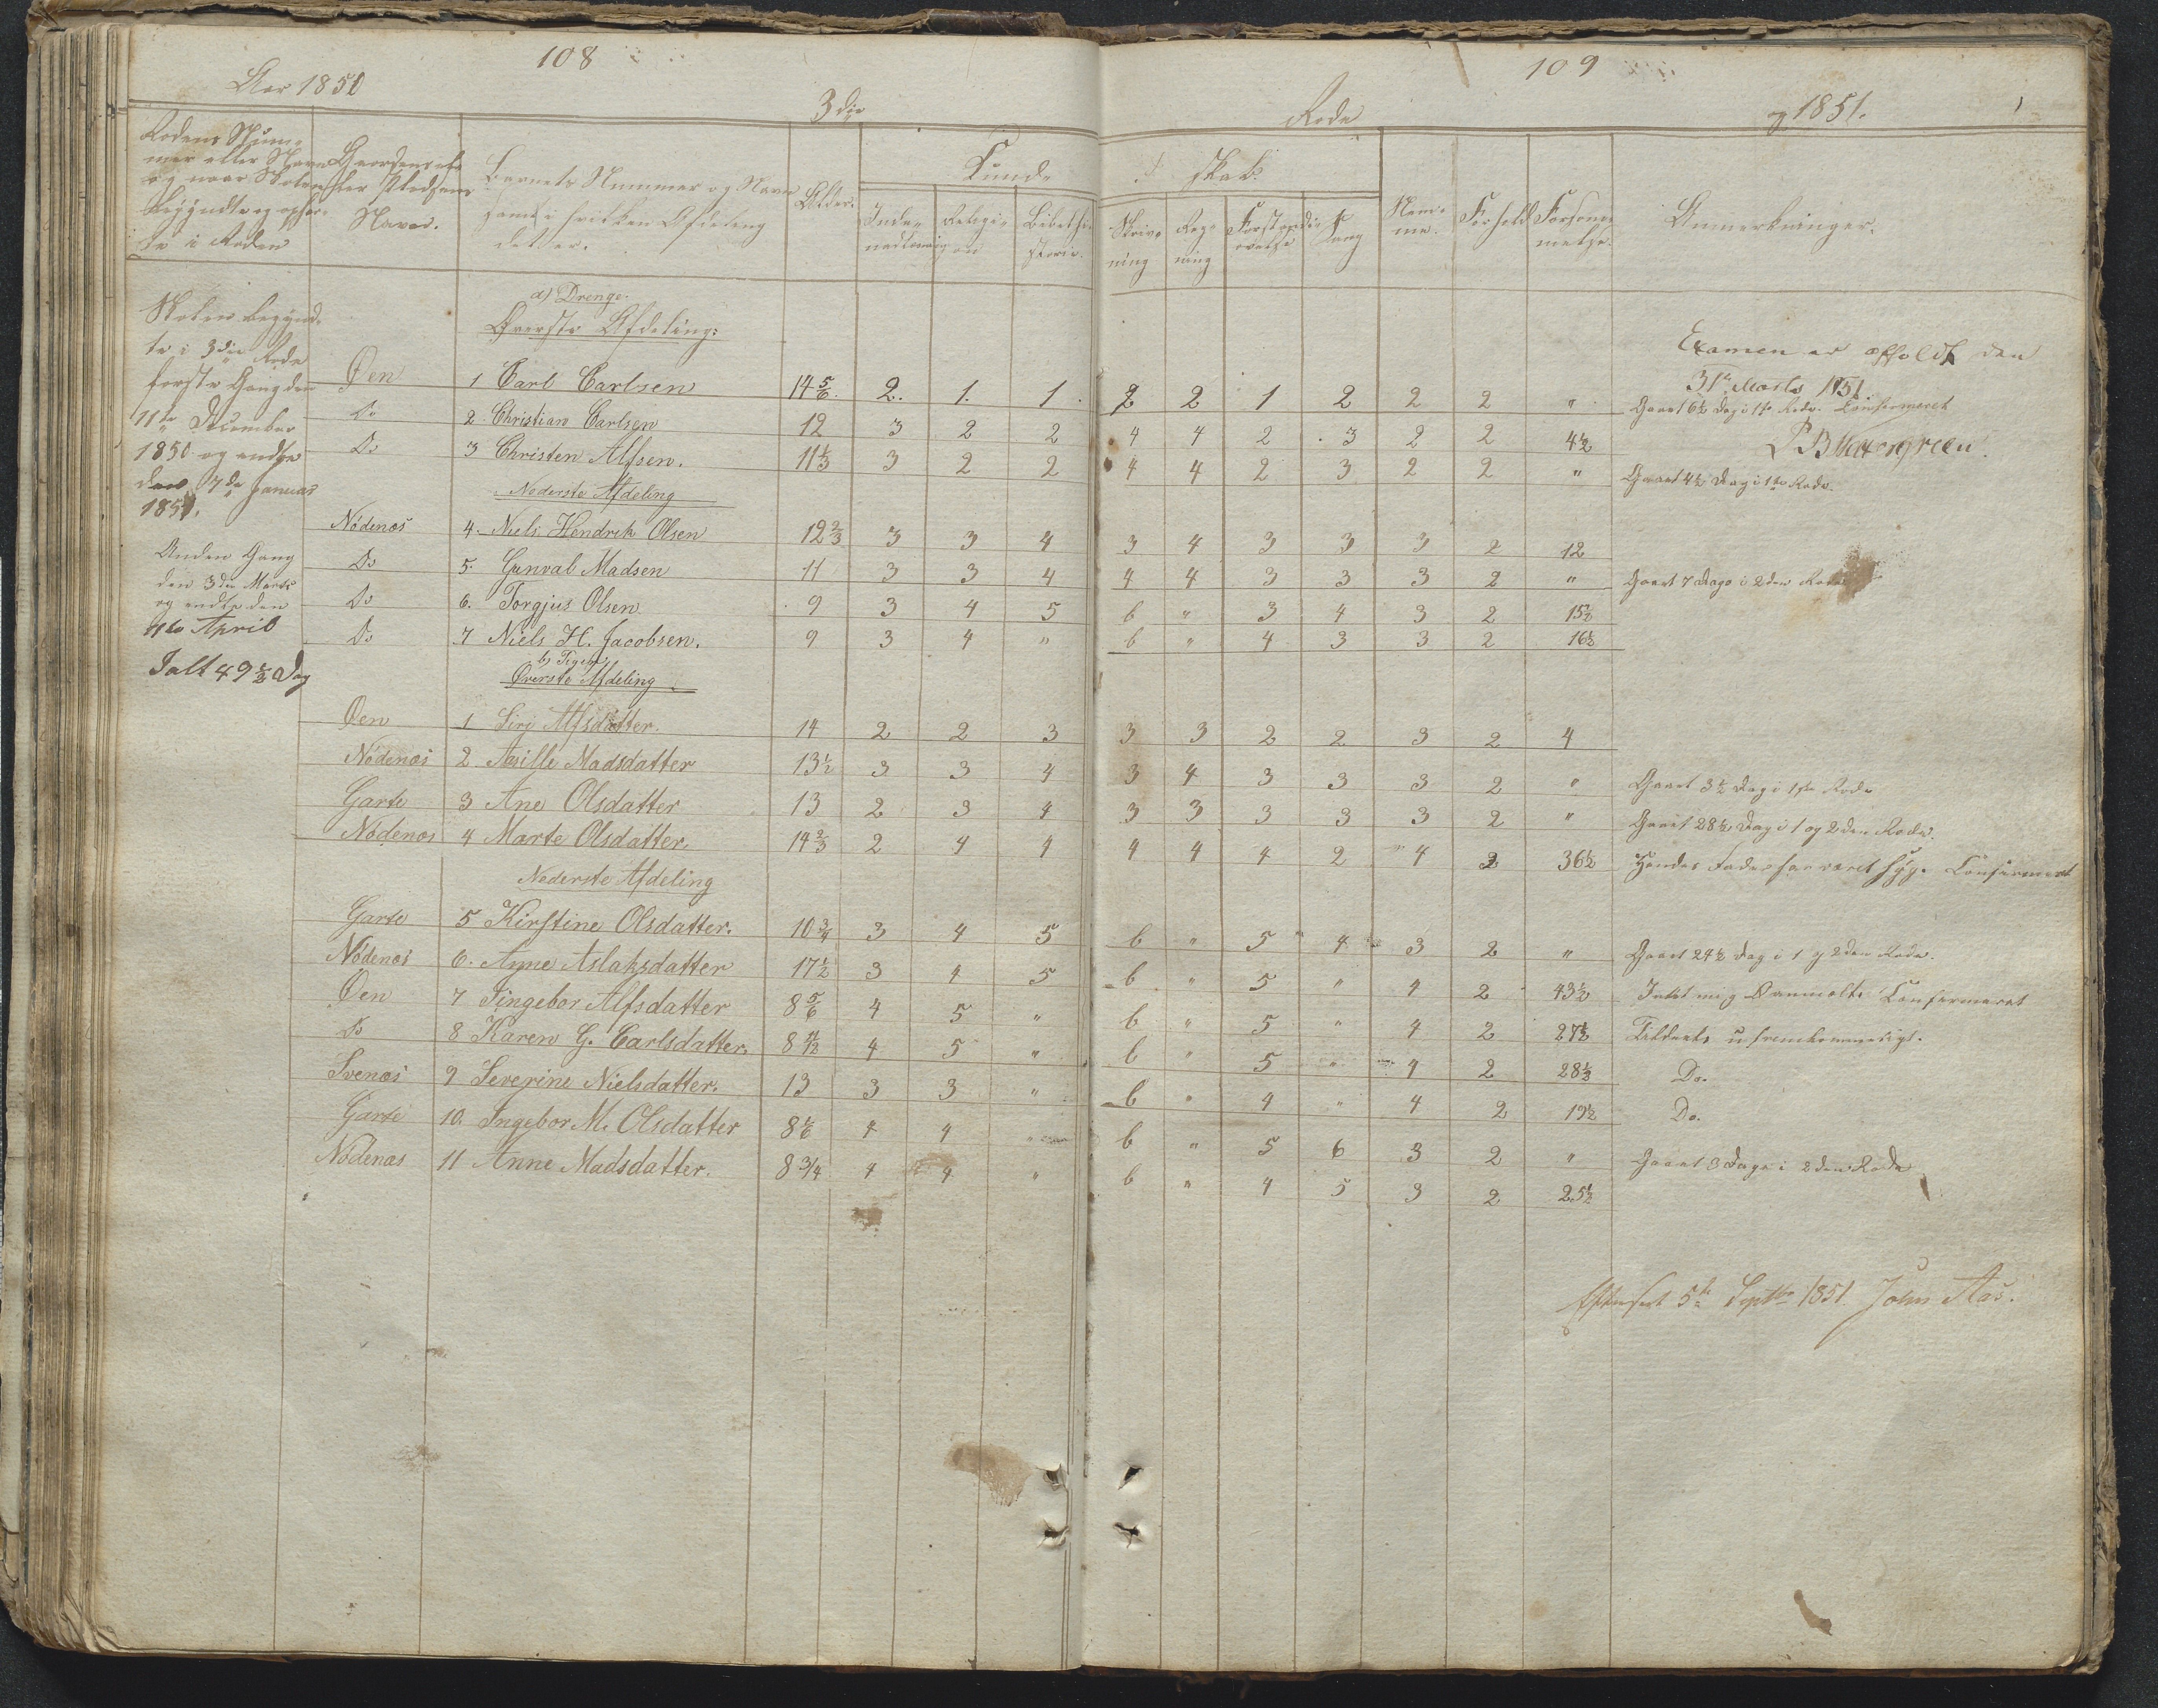 108
Aar 1850
3die
Rodens Num-
mer eller Navn
og naar Skolen
begyndte og ophør-
te i Roden
Gaardens el-
ler Pladsens
Navn.
Barnets Nummer og Navn
samt i hvilken Afdeling
det er.
Alder.
Kund-
Inden-
adlæsning
Religi-
on
Bibelhi-
storie.
Skolen begynd-
te i 3die Rode
første Gang den
11te December
1850 og endte
den 7de Januar
1851.
Anden Gang
den 3die Marts
og endte den
4de April
Ialt 49 1/2 Dag
a) Drenge.
Øverste Afdeling:
Øen 1 Carl Carlsen 14 5/6. 2. 1. 1.
Do 2. Christian Carlsen 12 3 2 2
Do 3 Christen Alfsen. 11 1/3 3 2 2
Nederste Afdeling
Nödenæs 4. Niels Hendrik Olsen 12 2/3 3 3 4
Do 5. Gunval Madsen 11 3 3 4
Do 6. Torgjus Olsen 9 3 4 5
Do 7 Niels H. Jacobsen. 9 3 4 "
b) Piger
Øverste Afdeling
Øen 1 Siri Alfsdatter. 14 2 2 3
Nödenæs 2 Asille Madsdatter 13 1/2 3 3 4
Garte 3 Ane Olsdatter 13 2 3 4
Nödenæs 4 Marte Olsdatter. 14 2/3 2 4 4
Nederste Afdeling
Garte 5 Kirstine Olsdatter. 10 3/4 3 4 5
Nödenæs 6. Anne Aslaksdatter 17 1/2 3 4 5
Øen 7 Fingebor Alfsdatter 8 5/6 4 5 "
Do 8 Karen G. Carlsdatter. 8 4 5 "
Svenæs 9 Severine Nielsdatter. 13 3 3 "
Garte 10. Ingebor M. Olsdatter 8 1/6 4 4 "
Nödenæs 11 Anne Madsdatter. 8 3/4 4 4 "
109
Rode
og 1851.
skab.
Skriv-
ning
Reg-
ning
Forstands-
øvelse
Sang
Nem-
me.
Forhold
Forsøm-
melse.
Anmerkninger.
Examen er afholdt den
31te Marts 1851.
2 2 1 2 2 2 " Gaaet 6 1/2 Dag i 1ste Rode. Confirmeret
4 4 2 3 2 2 4 1/2
4 4 2 3 2 2 " Gaaet 4 1/2 Dag i 1ste Rode.
3 4 3 3 3 2 12
4 4 3 3 3 2 " Gaaet 7 Dage i 2den Rode
6 " 3 4 3 2 15 1/2
6 " 4 3 3 2 16 1/2
3 3 2 2 3 2 4
3 4 3 3 3 2 " Gaaet 3 1/2 Dag i 1ste Rode
3 3 3 3 3 2 " Gaaet 28 1/2 Dag i 1 og 2den Rode.
4 4 4 2 4 2 36 1/2 Hendes Fader har været syg. Confirmeret
6 " 5 4 3 2 " Gaaet 24 1/2 Dag i 1 og 2den Rode.
6 " 5 " 4 2 43 1/2 Intet mig anmeldt. Confirmeret
6 " 5 " 4 2 27 1/2 Tildeels ufremkommeligt.
6 " 5 " 4 2 28 1/2 Do.
6 " 4 " 4 2 19 1/2 Do.
6 " 5 6 3 2 " Gaaet 3 Dage i 2den Rode
6 " 4 5 3 2 25 1/2
Efterseet 5te Septbr 1851 John Aas.